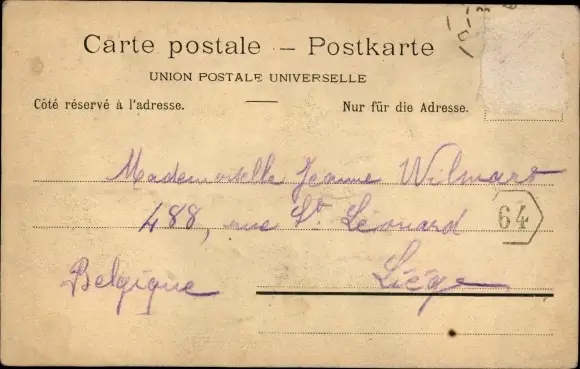 Carte postale — Postkarte
UNION POSTALE UNIVERSELLE
Côté réservé à l'adresse.
Nur für die Adresse.
Mademoiselle Jeanne Wilmart
488, rue St Léonard
64
Belgique
Liége